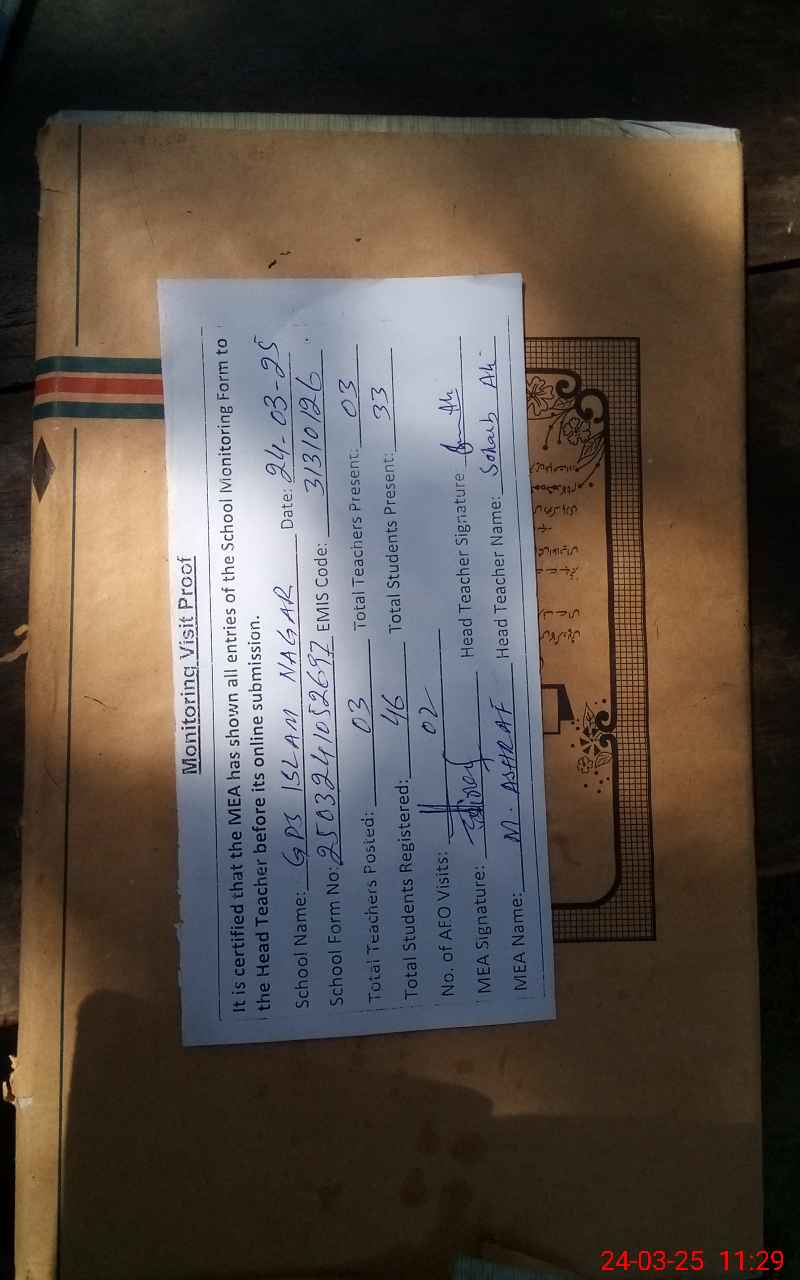 Monitoring Visit Proof
It is certified that the MEA has shown all entries of the School Monitoring Form to
the Head Teacher before its online submission.
School Name: GPS ISLAM NAGAR Date: 24-03-25
School Form No: 2503241052697 EMIS Code: 31310126
Total Teachers Posted: 03 Total Teachers Present: 03
Total Students Registered: 46 Total Students Present: 33
No. of AEO Visits: 02
MEA Signature: Head Teacher Signature
MEA Name: M. ASHRAF Head Teacher Name: Sohaib Ali
24-03-25 11:29